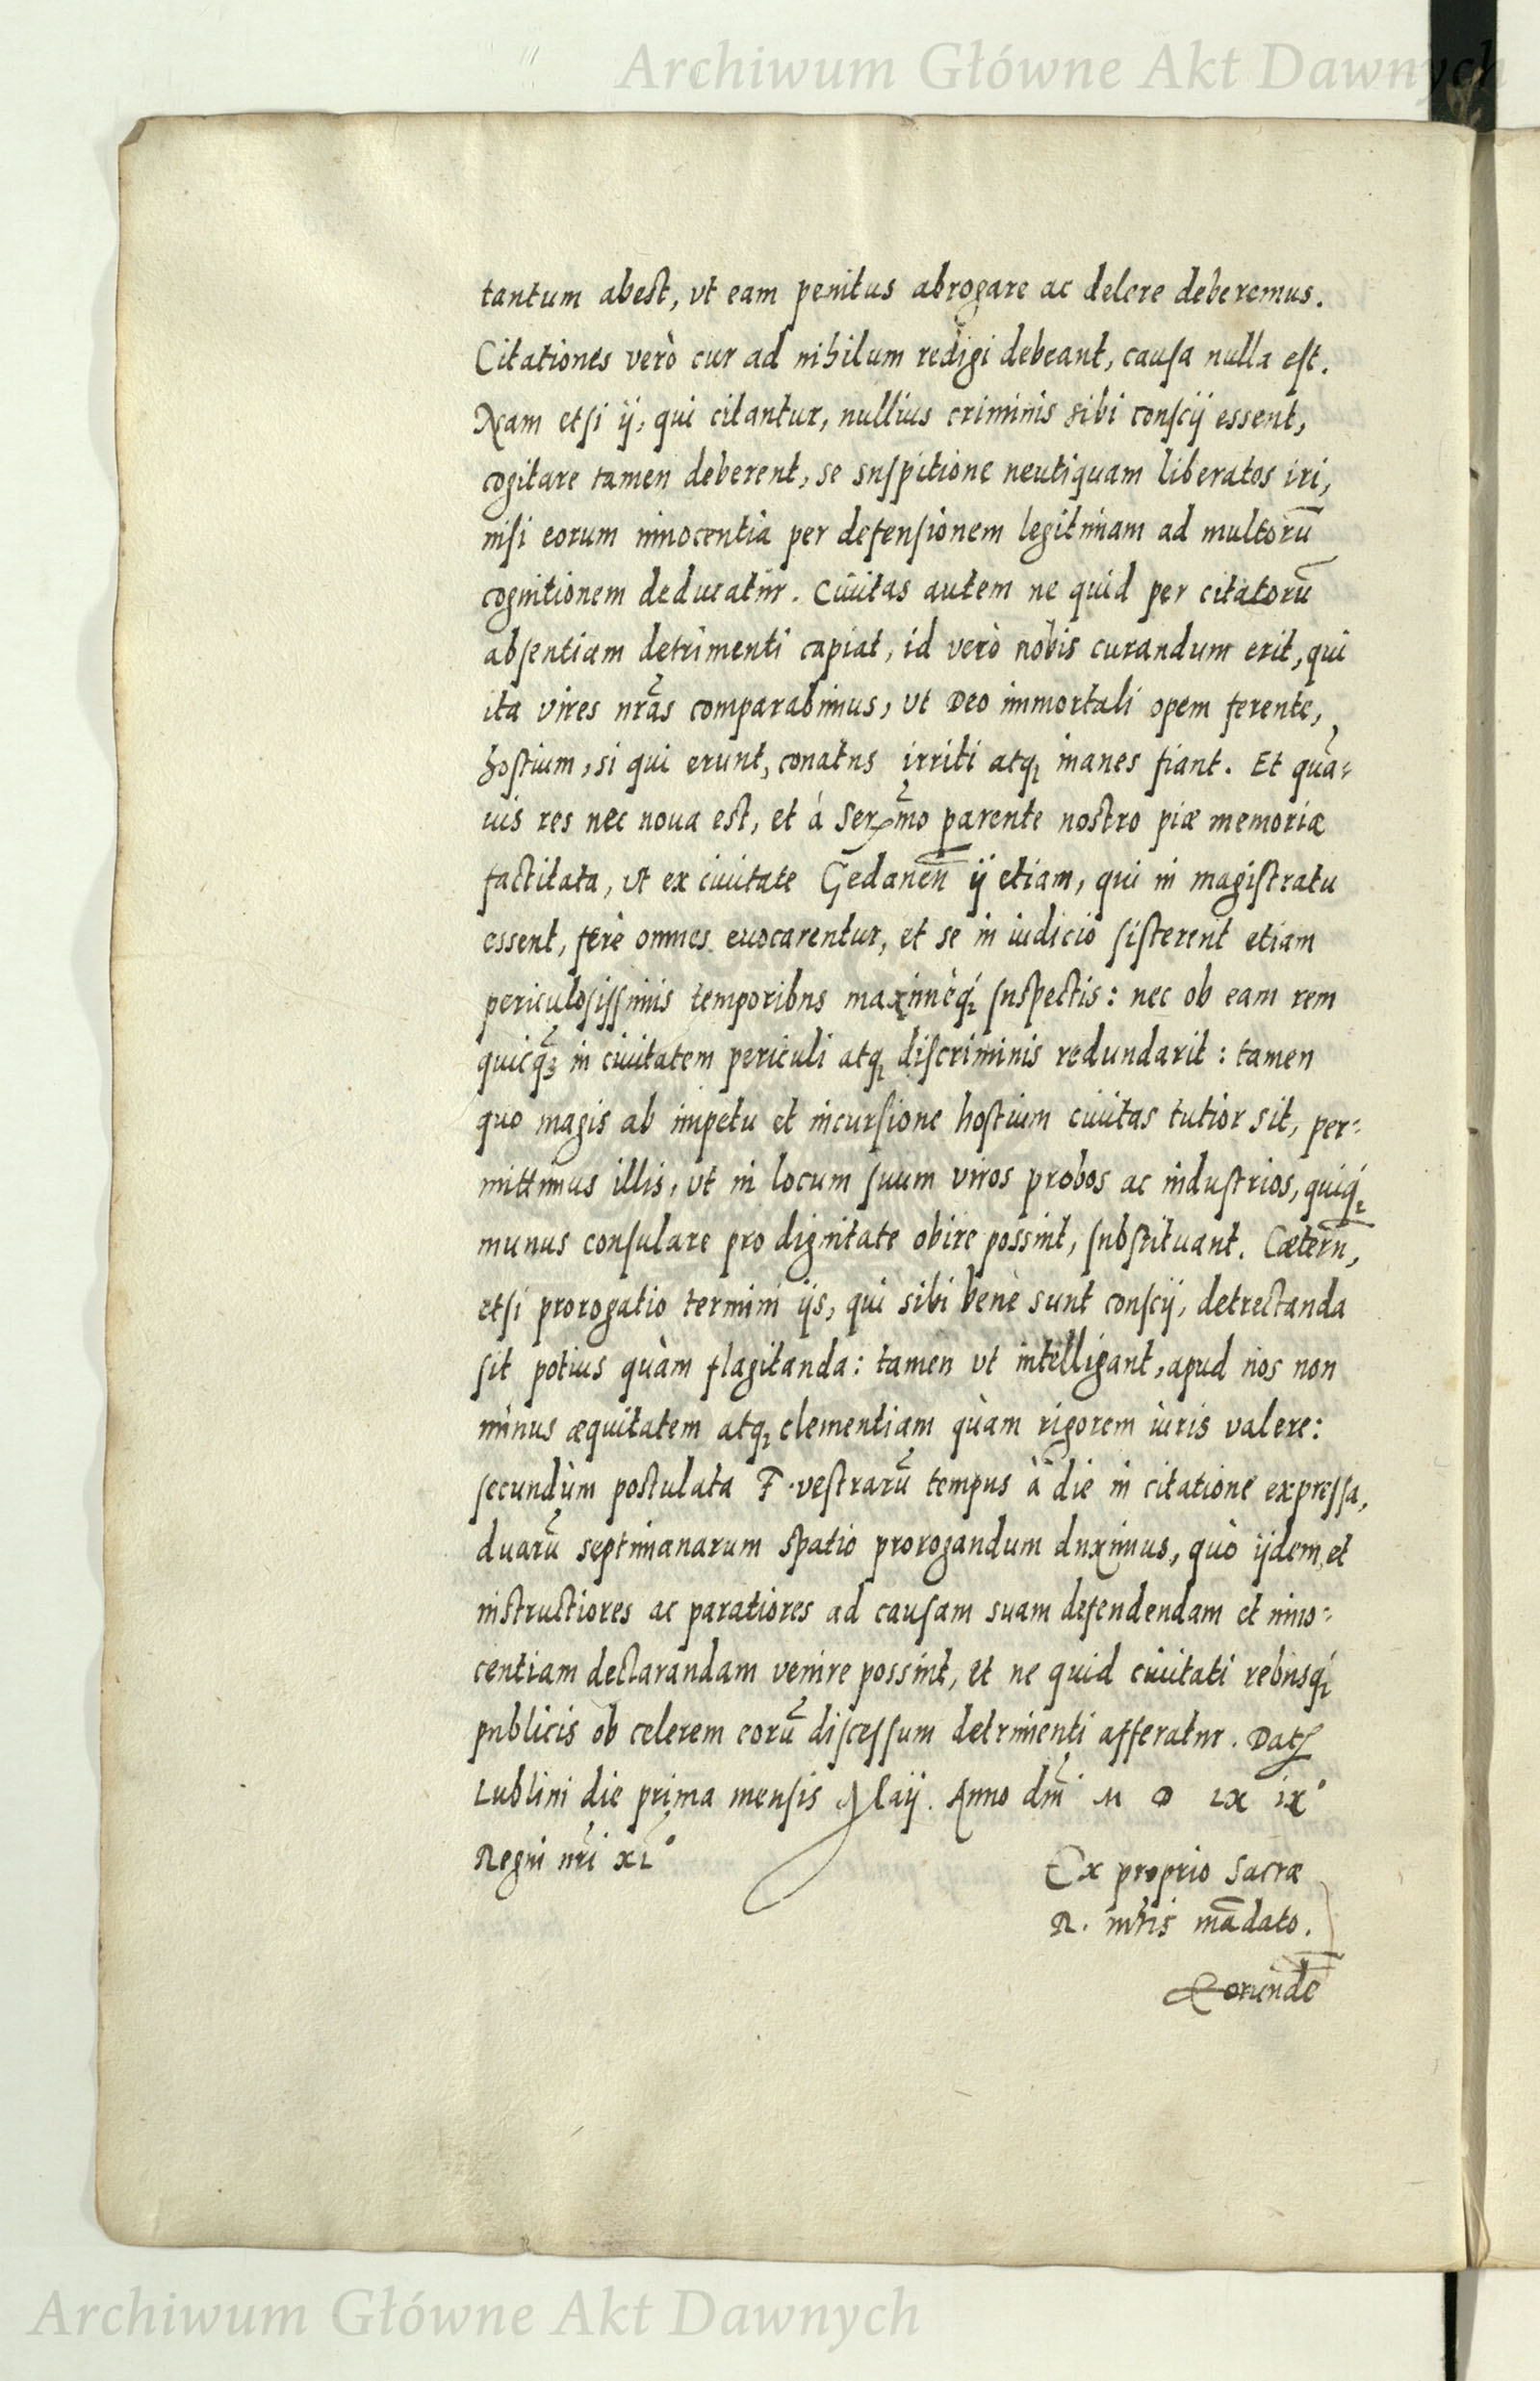 Archiwum Główne Akt Dawnych
tantum abest, vt eam penitus abrogare ac delere deberemus.
Citationes verò cur ad nihilum redigi debeant, causa nulla est.
Nam etsi ij, qui citantur, nullius criminis sibi conscij essent,
cogitare tamen deberent, se suspitione neutiquam liberatos iri,
nisi eorum innocentia per defensionem legitimam ad multorũ
cognitionem deducatur. Ciuitas autem ne quid per citatorũ
absentiam detrimenti capiat, id verò nobis curandum erit, qui
ita vires nrãs comparabimus, vt Deo immortali opem ferente,
hostium, si qui erunt, conatus irriti atq; inanes fiant. Et quã-
uis res nec noua est, et à Serx̃mo parente nostro piæ memoriæ
factitata, vt ex ciuitate Gedaneñ ij etiam, qui in magistratu
essent, ferè omnes euocarentur, et se in iudicio sisterent etiam
periculosissimis temporibus maximèq; suspectis: nec ob eam rem
quicq̃ȝ in ciuitatem periculi atq; discriminis redundarit: tamen
quo magis ab impetu et incursione hostium ciuitas tutior sit, per-
mittimus illis, vt in locum suum viros probos ac industrios, quiq;
munus consulare pro dignitate obire possint, substituant. Cæterũ,
etsi prorogatio termini ijs, qui sibi benè sunt conscij, detrectanda
sit potius quàm flagitanda: tamen vt intelligant, apud nos non
minus æquitatem atq; clementiam quàm rigorem iuris valere:
secundùm postulata F. vestrarũ tempus à die in citatione expressa,
duarũ septimanarum spatio prorogandum duximus, quò ijdem, et
instructiores ac paratiores ad causam suam defendendam et inno-
centiam declarandam venire possint, et ne quid ciuitati rebusq;
publicis ob celerem eorũ discessum detrimenti afferatur. Dat
Lublini die prima mensis Maij. Anno dm̃ M D LX ix°
Regni nr̃i XL°
Ex proprio Sacræ
R. mtis mãdato.
Archiwum Główne Akt Dawnych